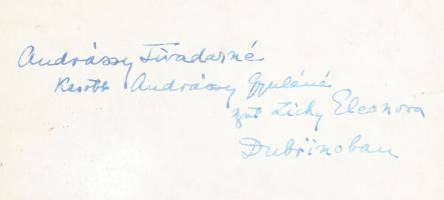 Andrássy Tivadarné
Később Andrássy Gyuláné
gróf Zichy Eleonora
Dubrinoban